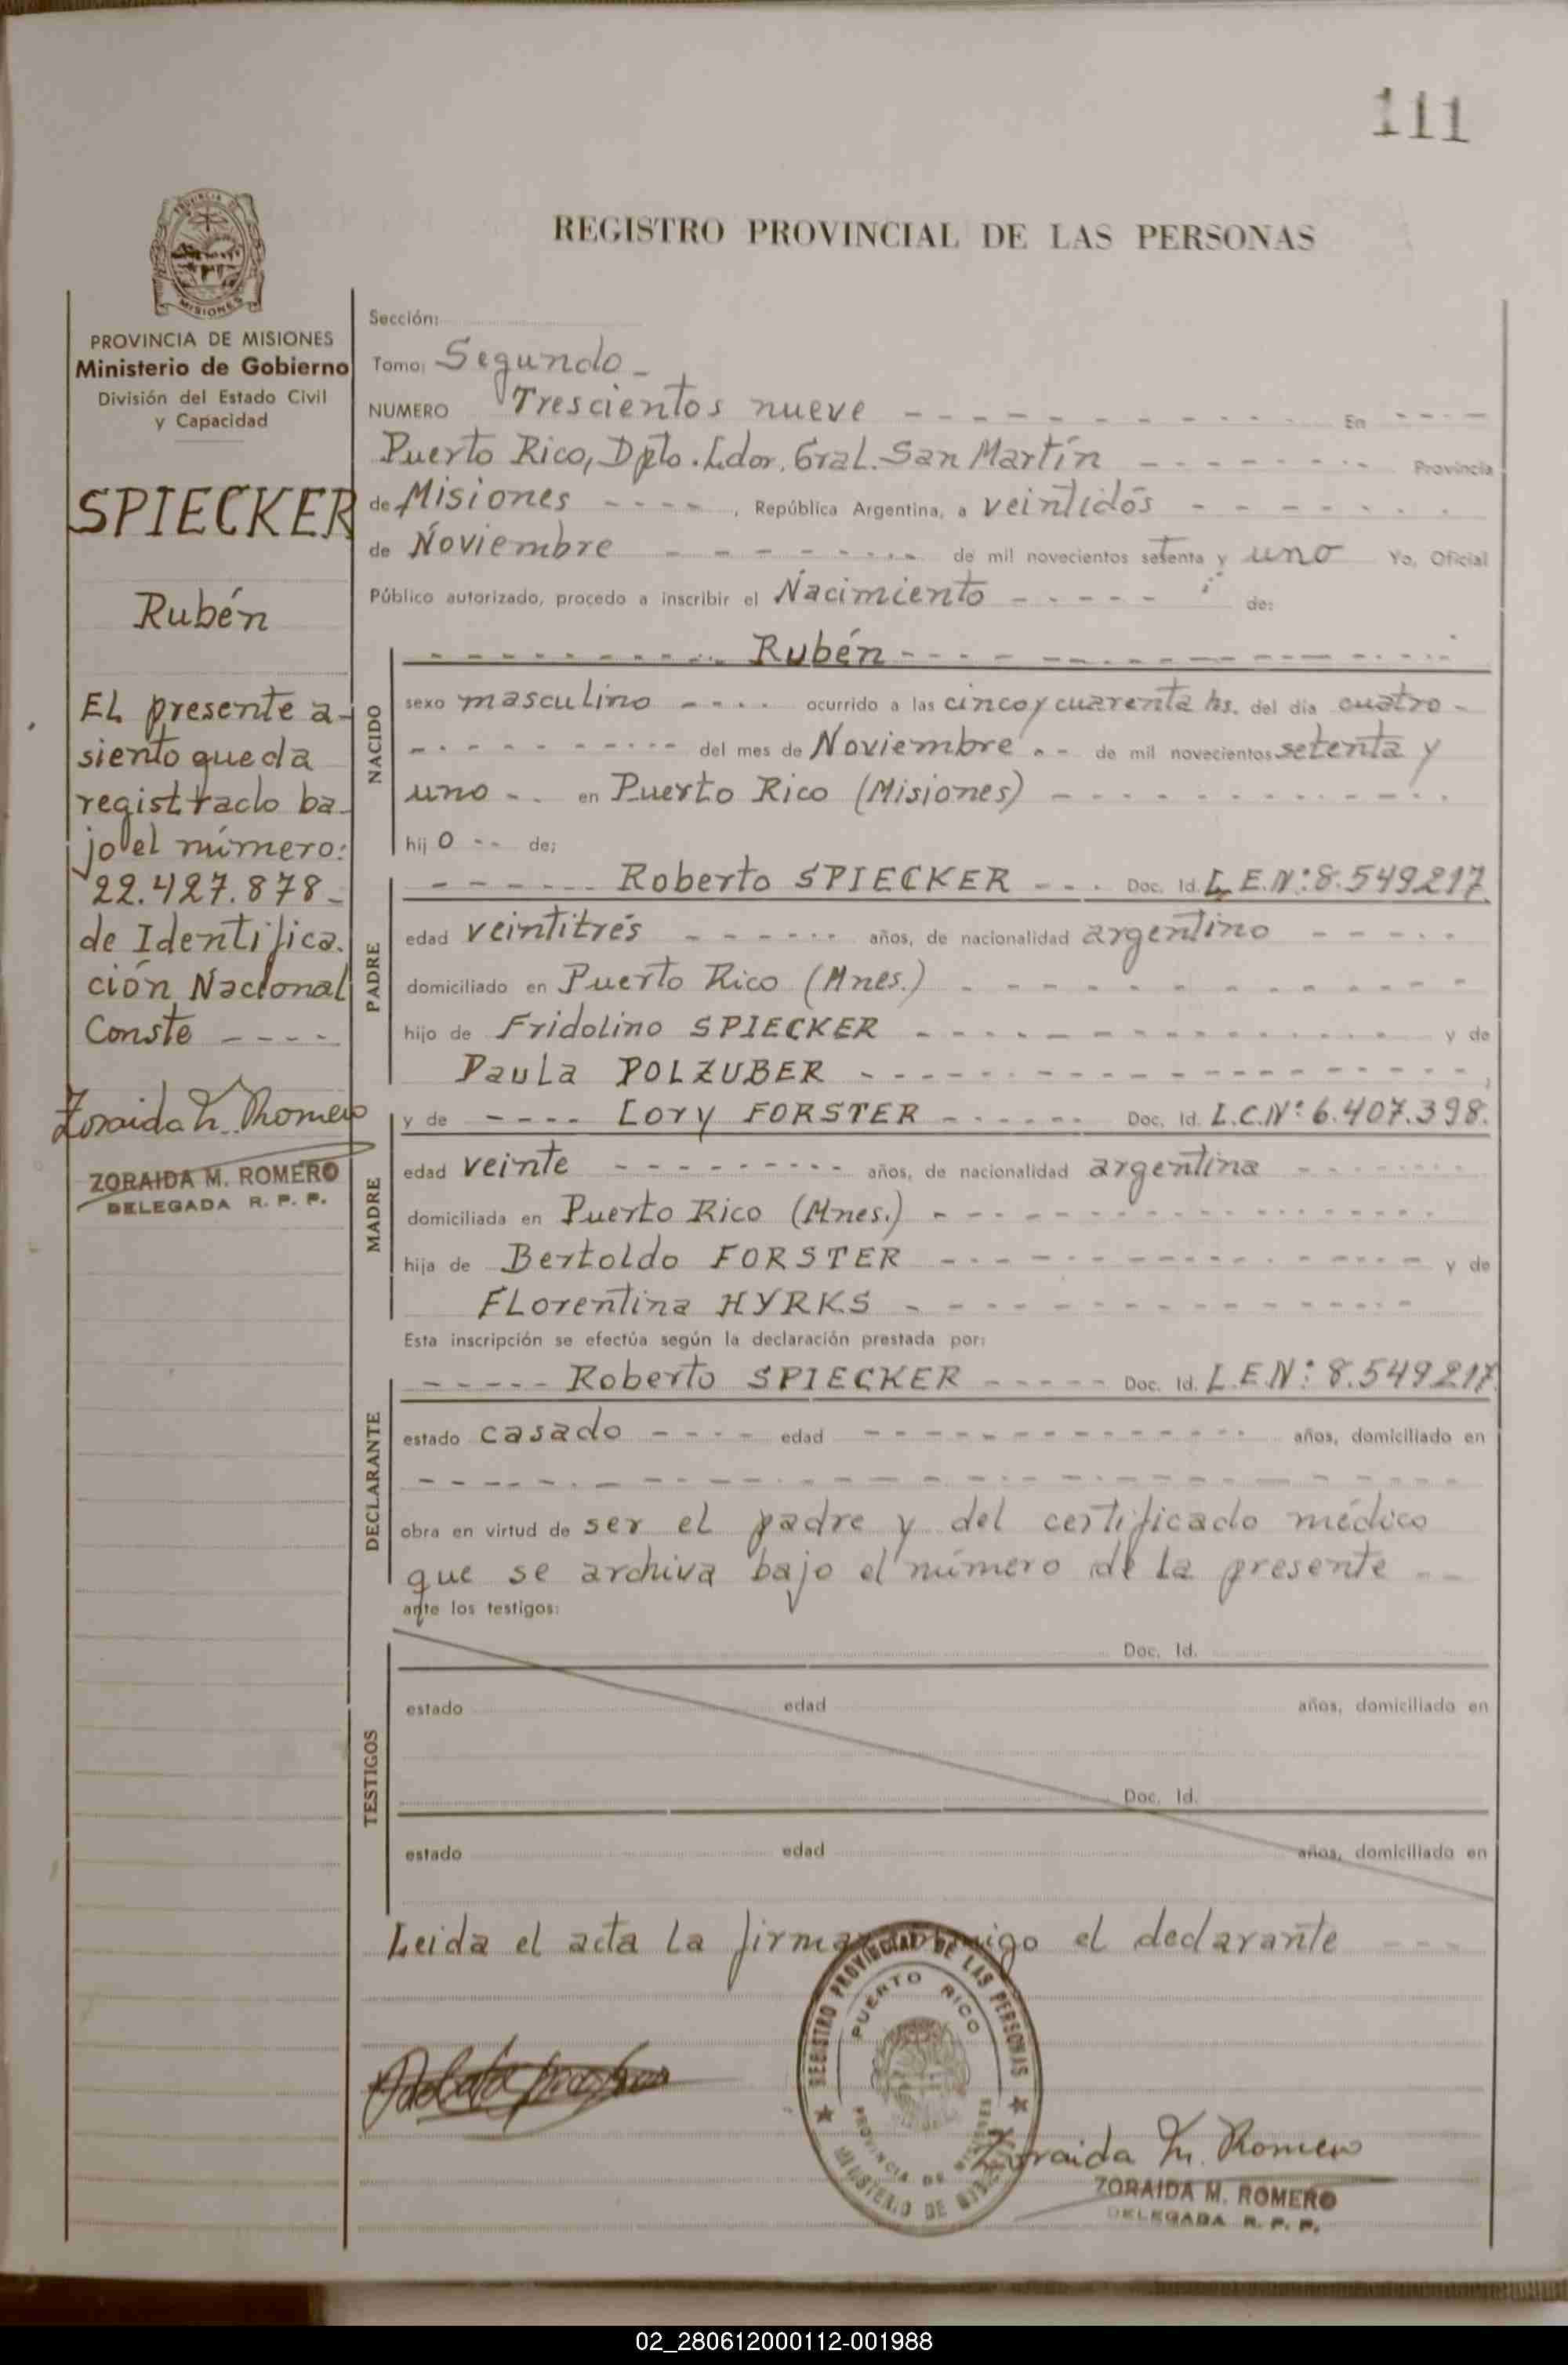 111
REGISTRO PROVINCIAL DE LAS PERSONAS
PROVINCIA DE MISIONES
Ministerio de Gobierno
División del Estado Civil
y Capacidad
SPIECKER
Rubén
EL presente a-
siento queda
registrado ba-
jo el número:
22.427.878-
de Identifica-
ción Nacional
Conste ----
Zoraida M. Romero
ZORAIDA M. ROMERO
DELEGADA R. P. P.
Sección:
Tomo: Segundo-
NUMERO Trescientos nueve - - - - En ----
Puerto Rico, Dpto. Ldor. Gral. San Martín - - - - Provincia
de Misiones ----, República Argentina, a veintidós - - - -
de Noviembre - - - - de mil novecientos setenta y uno Yo, Oficial
Público autorizado, procedo a inscribir el Nacimiento - - - - - de:
NACIDO
- - - - Rubén - - - -
sexo masculino - - - - ocurrido a las cinco y cuarenta hs. del día cuatro -
- - - - del mes de Noviembre - - de mil novecientos setenta y
uno - - en Puerto Rico (Misiones) - - - -
hij o -- de;
PADRE
- - - - Roberto SPIECKER - - - Doc. Id. L.E.Nº: 8.549217
edad veintitrés - - - - años, de nacionalidad argentino - - - -
domiciliado en Puerto Rico (Mnes.) - - - -
hijo de Fridolino SPIECKER - - - - y de
Paula POLZUBER - - - -
MADRE
y de ---- Lory FORSTER - - - - Doc. Id. L.C.Nº 6.407.398.
edad veinte - - - - años, de nacionalidad argentina - - - -
domiciliada en Puerto Rico (Mnes.) - - - -
hija de Bertoldo FORSTER - - - - y de
FLorentina HYRKS - - - -
Esta inscripción se efectúa según la declaración prestada por:
DECLARANTE
----- Roberto SPIECKER ----- Doc. Id. L.E.Nº: 8.549217
estado casado - - - - edad - - - - años, domiciliado en
- - - -
obra en virtud de ser el padre y del certificado médico
que se archiva bajo el número de la presente --
ante los testigos:
TESTIGOS
Doc. Id.
estado edad años, domiciliado en
Doc. Id.
estado edad años, domiciliado en
Leida el acta la firma conmigo el declarante ---
REGISTRO PROVINCIAL DE LAS PERSONAS
PUERTO RICO
PROVINCIA DE MISIONES
MINISTERIO DE GOBIERNO
Zoraida M. Romero
ZORAIDA M. ROMERO
DELEGADA R. P. P.
02_280612000112-001988